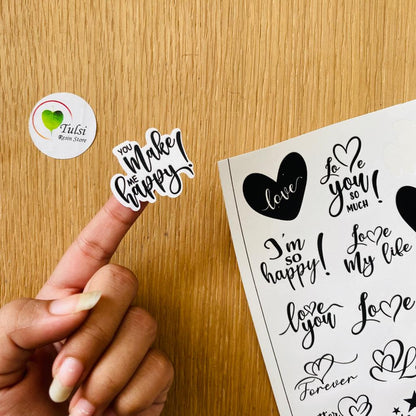 Tulsi
Resin Store
YOU
Make
ME
happy!
love
Love
you
SO
MUCH!
I'm
SO
happy!
Love
My life
love
you
Love
Forever